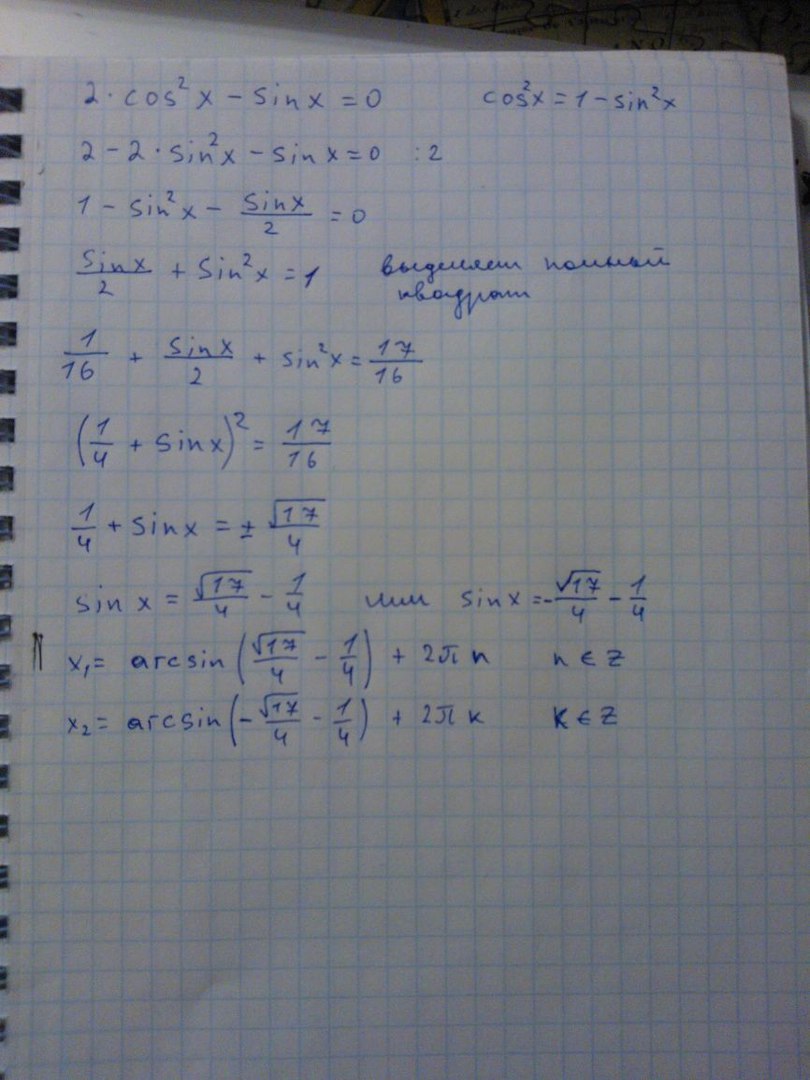 2 · cos²x − sinx = 0 cos²x = 1 − sin²x
2 − 2 · sin²x − sin x = 0 :2
1 − sin²x − sinx/2 = 0
sinx/2 + sin²x = 1 выделяем полный
квадрат
1/16 + sinx/2 + sin²x = 17/16
(1/4 + sinx)² = 17/16
1/4 + sinx = ± √17/4
sin x = √17/4 − 1/4 или sinx = −√17/4 − 1/4
x₁ = arcsin(√17/4 − 1/4) + 2π n n ∈ Z
x₂ = arcsin(−√17/4 − 1/4) + 2π k k ∈ Z